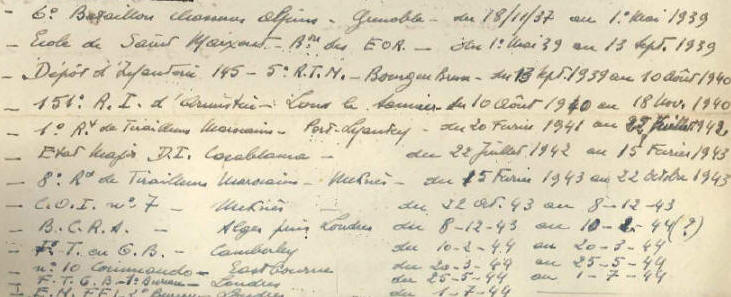 - 6e Bataillon Chasseurs Alpins - Grenoble - du 18/11/37 au 1er Mai 1939
- Ecole de Saint Maixent - Bon des E O R. - du 1er Mai 39 au 13 Sept. 1939
- Dépôt d'Infanterie 145 - 5e R.T.M. - Bourg en Bresse - du 13 Sept. 1939 au 10 Août 1940
- 151e R.I. d'armistice - Lons le Saunier du 10 Août 1940 au 18 Nov. 1940
- 1er Rt de Tirailleurs Marocains - Port-Lyautey - du 20 Février 1941 au 22 Juillet 1942
- Etat Major D.I. Casablanca - du 22 Juillet 1942 au 15 Février 1943
- 8e Rt de Tirailleurs Marocains - Meknès - du 15 Février 1943 au 22 Octobre 1943
- C.O.I. n° 7 - Meknès - du 22 Oct. 43 au 8-12-43
- B.C.R.A. - Alger puis Londres du 8-12-43 au 10-2-44 (?)
- T. en G.B. - Camberley du 10-2-44 au 20-3-44
- n° 10 Commando - Eastbourne du 20-3-44 au 25-5-44
- F.T.G.B. - Bureau - Londres du 25-5-44 au 1-7-44
E.M.F.F.I. 2e Bureau - Londres du 1-7-44